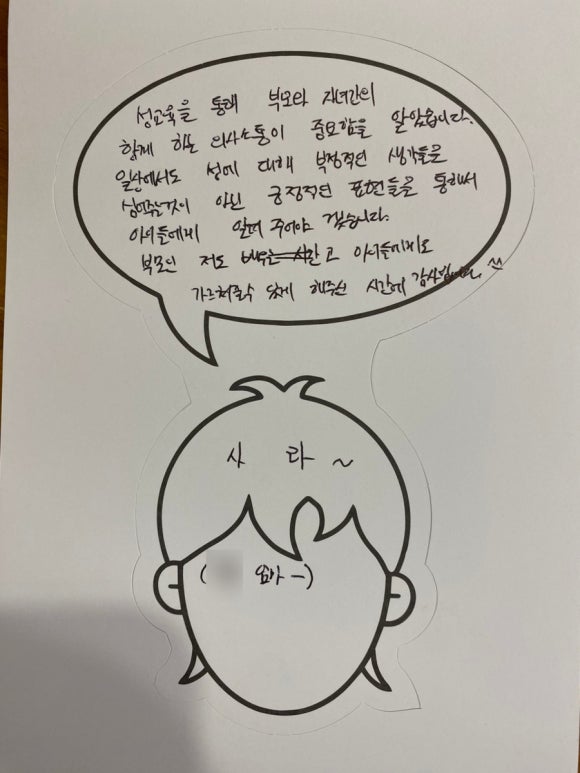 성교육을 통해 부모와 자녀간의
함께 하는 의사소통이 중요함을 알았습니다.
일상에서도 성에 대해 부정적인 생각들을
심어주는것이 아닌 긍정적인 표현들을 통해서
아이들에게 알려 주어야 겠습니다.
부모인 저도 알고 아이들에게도
가르쳐줄수 있게 해주신 시간에 감사합니다.
사 라 ~
( 엄마 -)